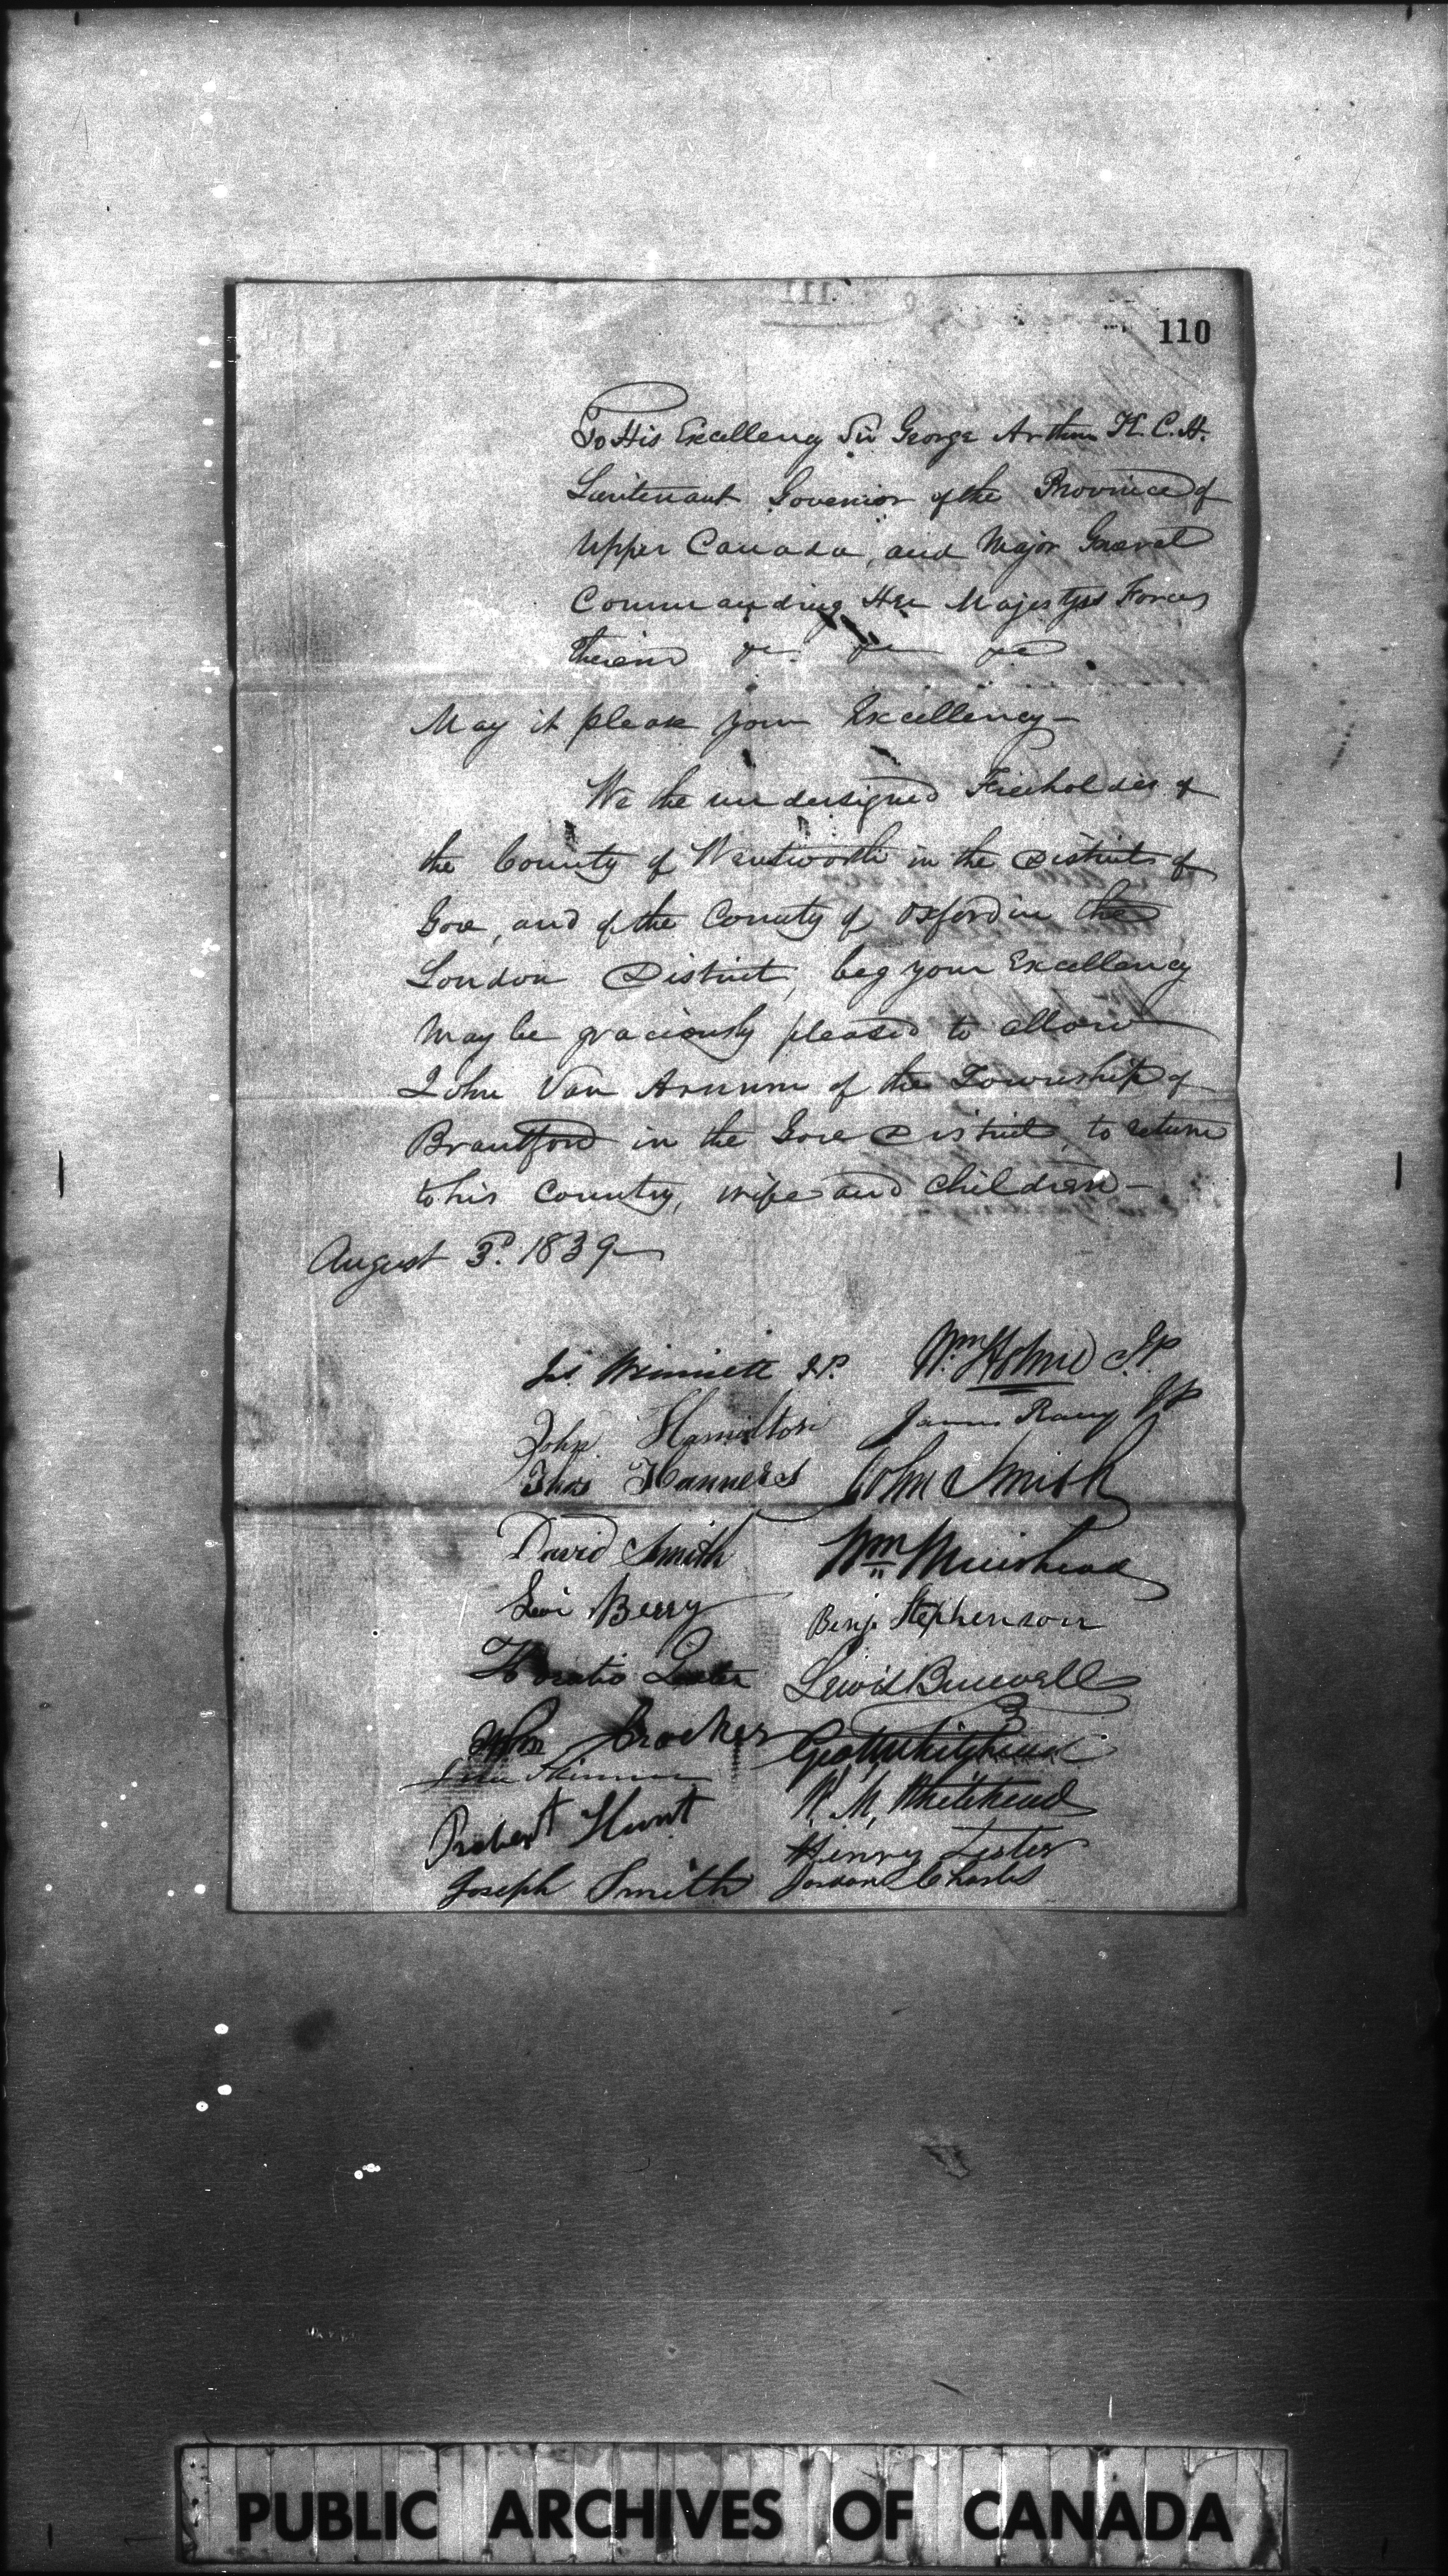 110
To His Excellency Sir George Arthur K. C. H.
Lieutenant Governor of the Province of
Upper Canada, and Major General
Commanding Her Majestys Forces
therein &c &c &c
May it please your Excellency—
We the undersigned Freeholders of
the County of Wentworth in the District of
Gore, and of the County of Oxford in the
London District, beg your Excellency
may be graciously pleased to allow
John Van Arnum of the Township of
Brantford in the Gore District, to return
to his Country, wife and children—
August 3d. 1839
Jas. Winniett J.P. Wm Holme J.P.
John Hamilton James Racey JP
Thos John Smith
David Smith Wm Muirhead
Levi Berry Benj. Stephenson
Horatio Lewis Burwell
John Crocker Geo Whitehead
Skinner W. M. Whitehead
Robert Hunt Henry Lester
Joseph Smith Jordan Charles
PUBLIC ARCHIVES OF CANADA